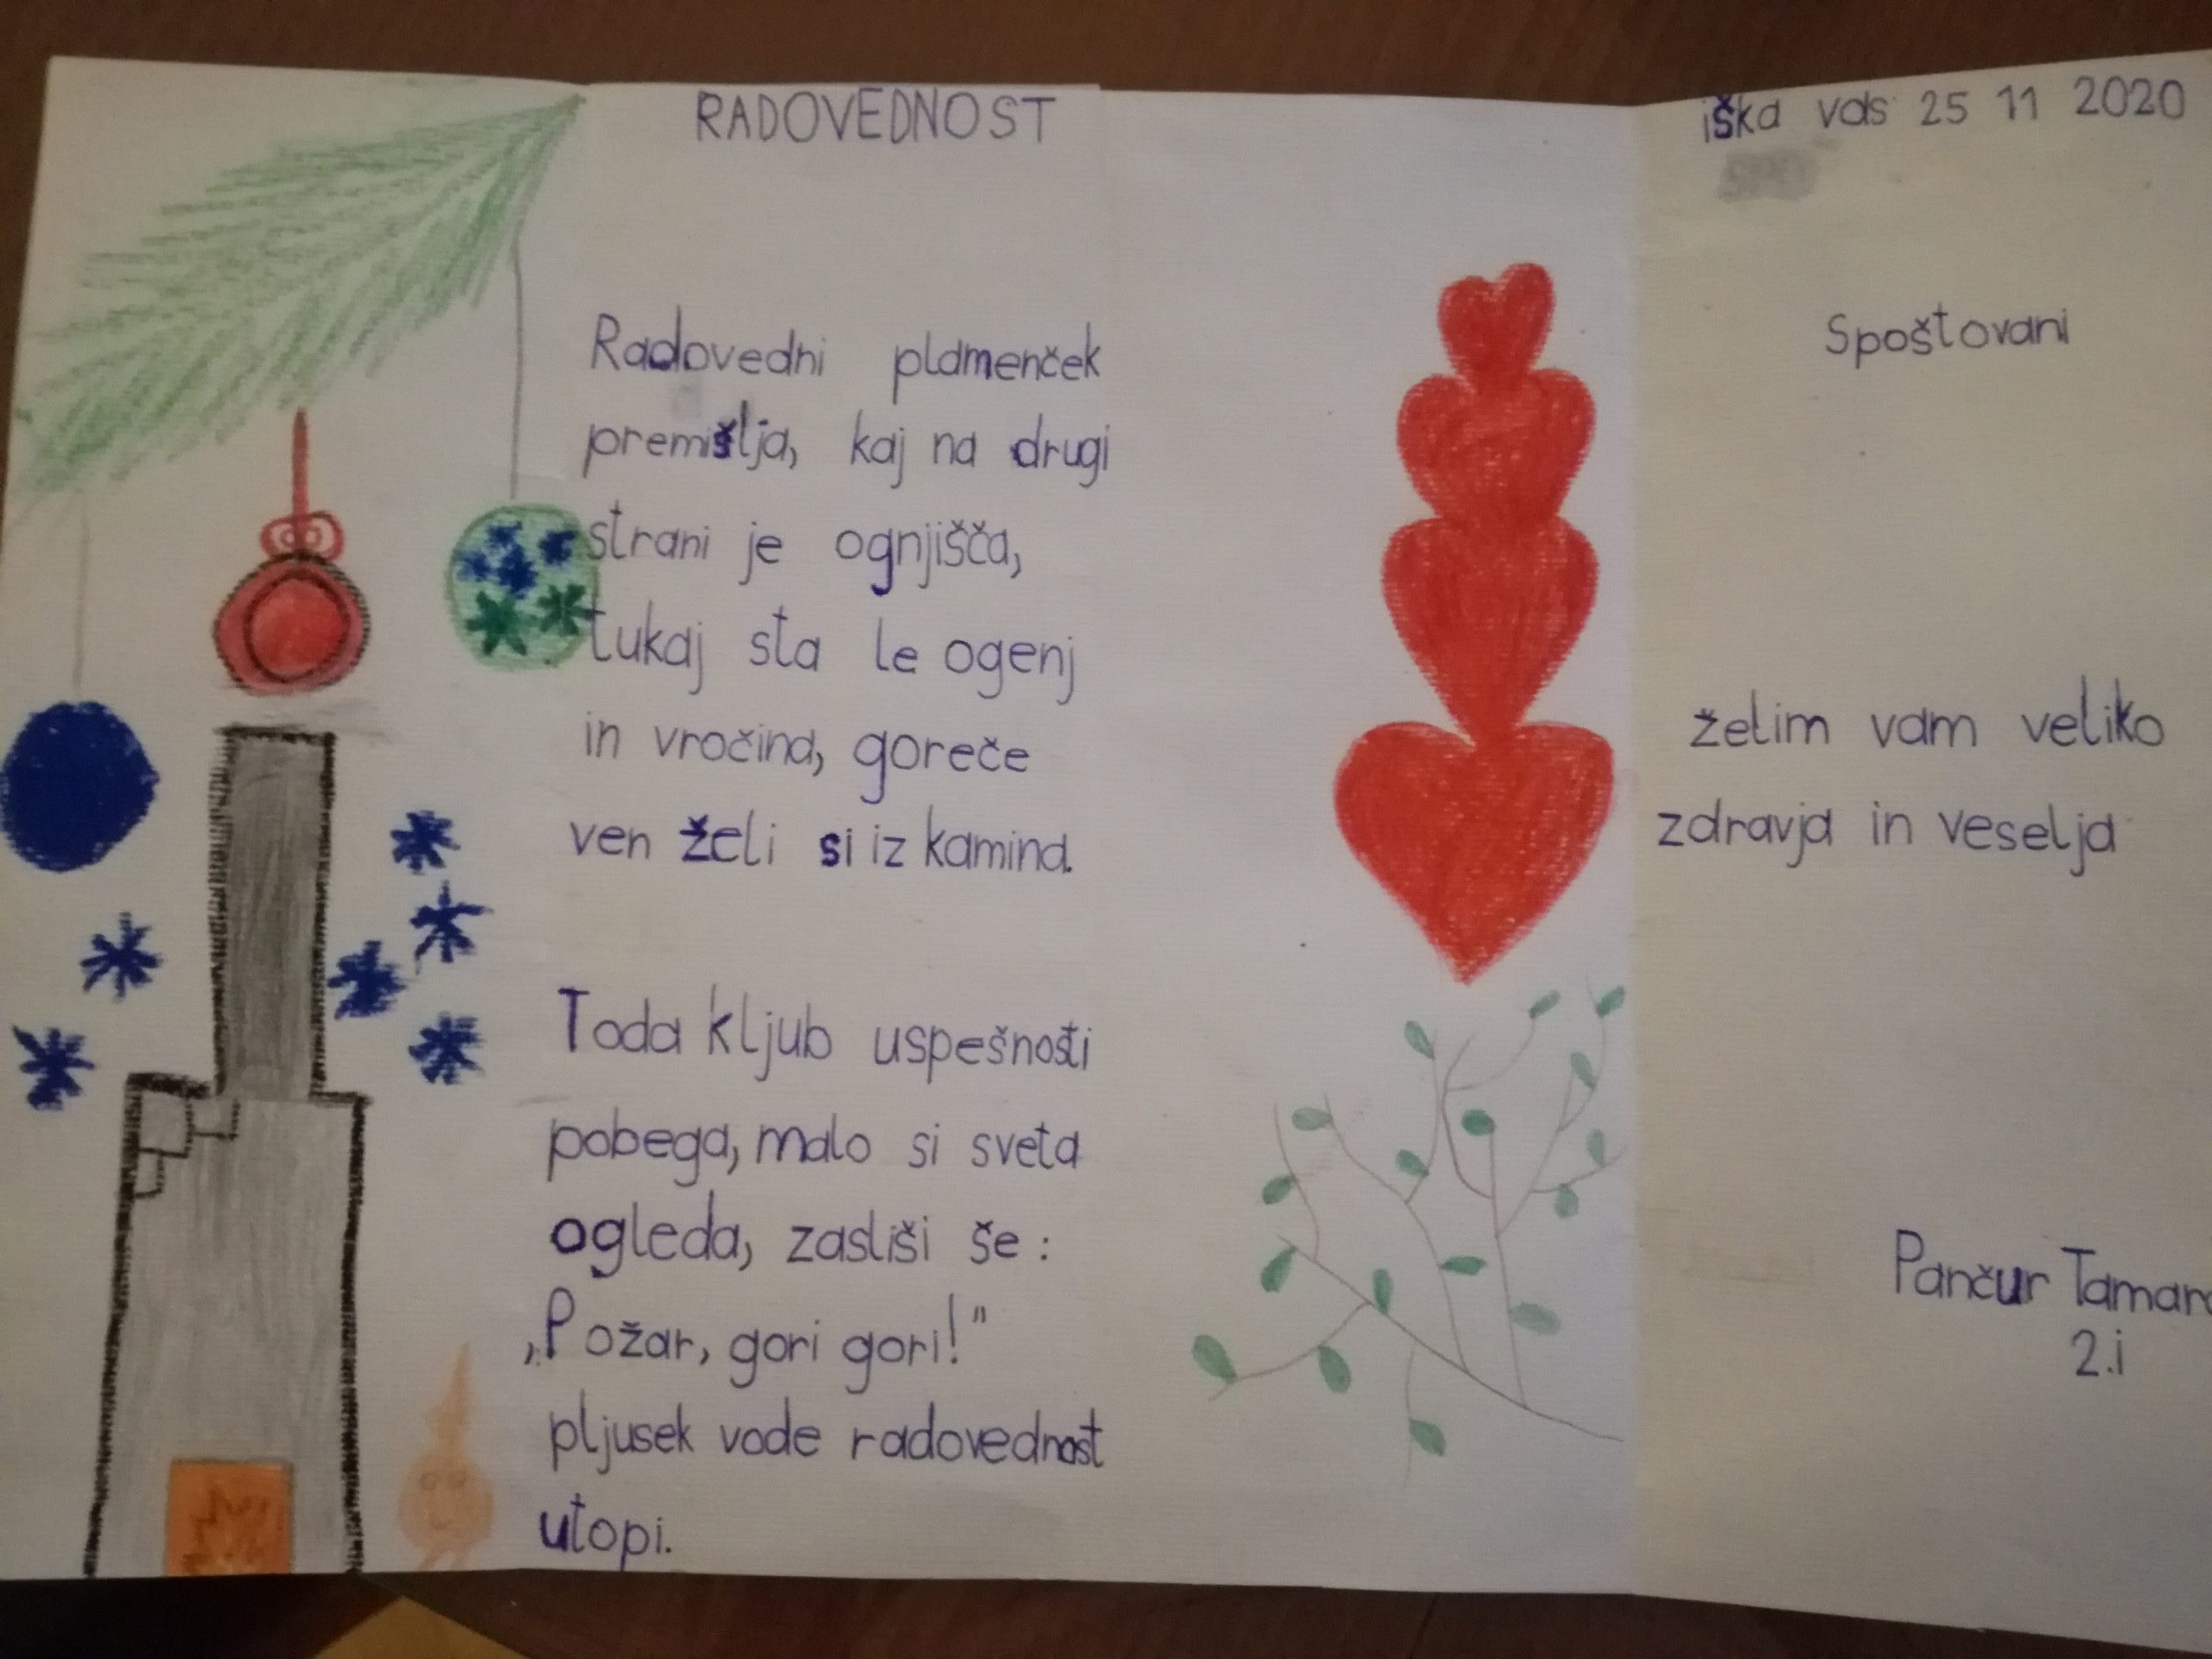 RADOVEDNOST
Radovedni plamenček
premišlja, kaj na drugi
strani je ognjišča,
tukaj sta le ogenj
in vročina, goreče
ven želi si iz kamina.
Toda kljub uspešnosti
pobega, malo si sveta
ogleda, zasliši še :
„Požar, gori gori!"
pljusek vode radovednost
utopi.
iška vas 25 11 2020
Spoštovani
želim vam veliko
zdravja in veselja
Pančur Tamara
2.i